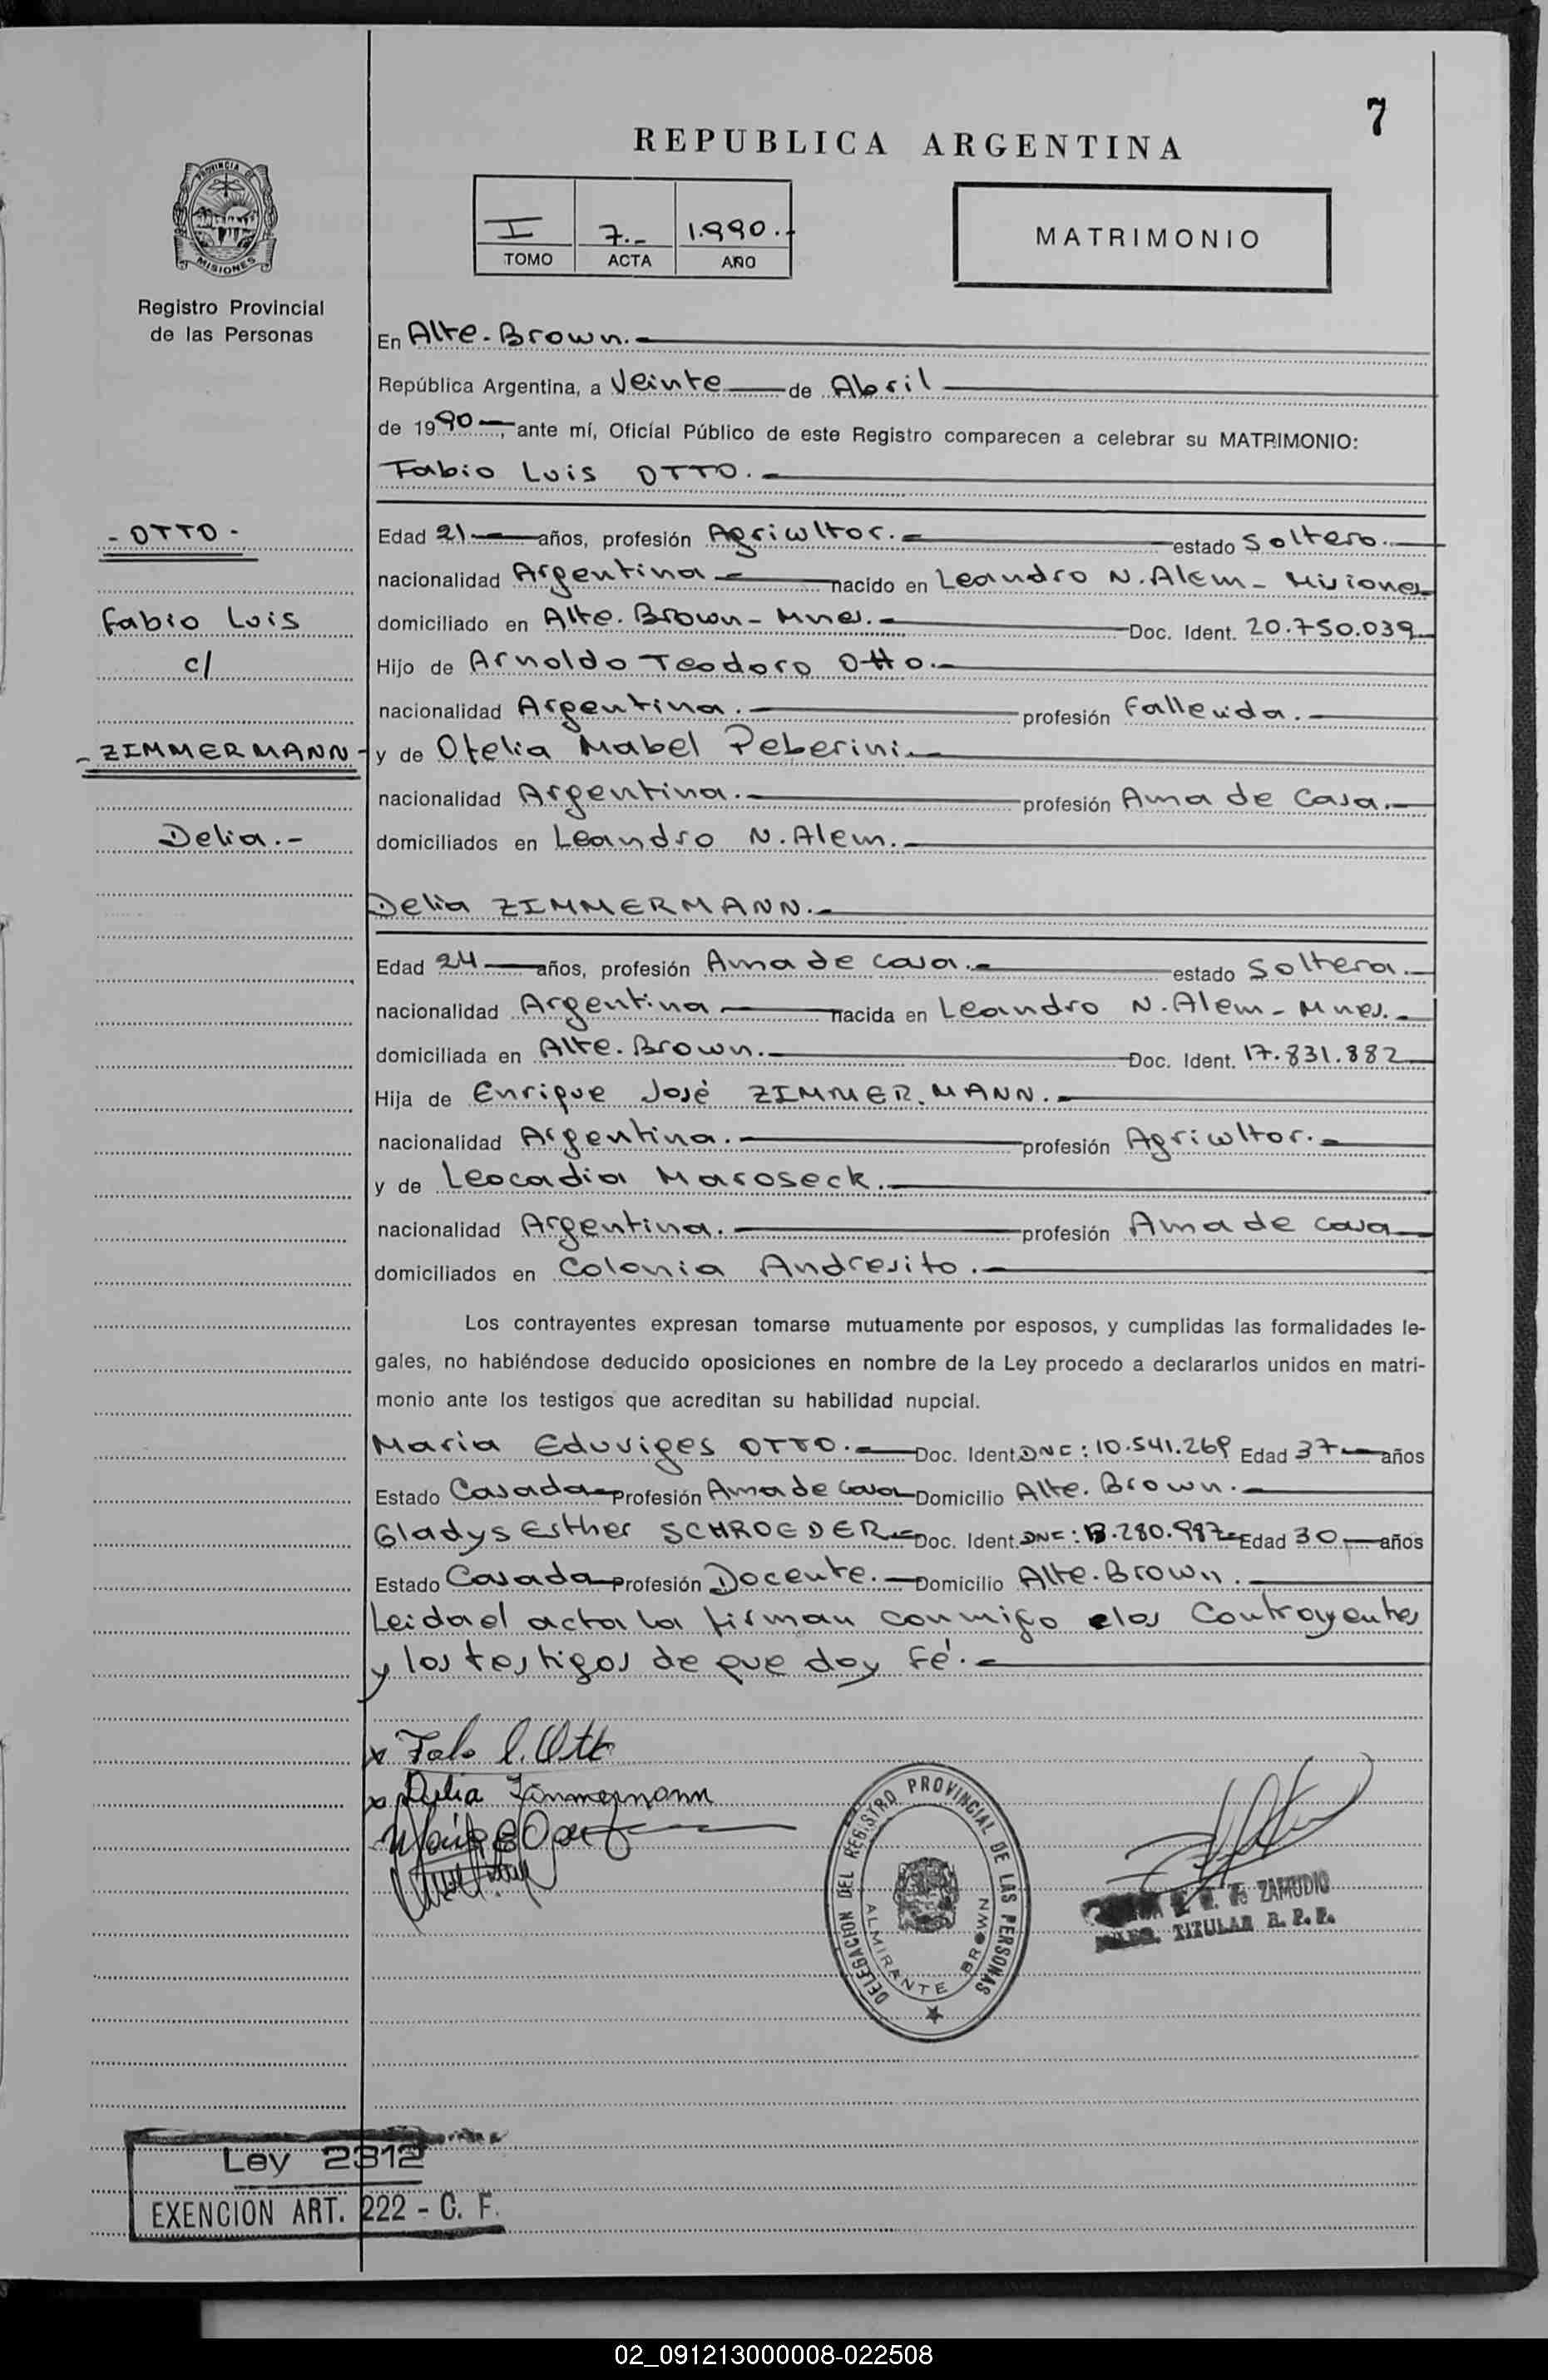 7
REPUBLICA ARGENTINA
PROVINCIA DE
MISIONES
I 7.- 1.990.-
TOMO ACTA AÑO
MATRIMONIO
Registro Provincial
de las Personas
En Alte. Brown.-
República Argentina, a Veinte de Abril
de 1990, ante mí, Oficial Público de este Registro comparecen a celebrar su MATRIMONIO:
Fabio Luis OTTO.-
- OTTO -
Edad 21 años, profesión Agricultor.- estado Soltero.-
nacionalidad Argentina.- nacido en Leandro N. Alem - Misiones
Fabio Luis
domiciliado en Alte. Brown - Mnes.- Doc. Ident. 20.750.039
c/
Hijo de Arnoldo Teodoro Otto.-
nacionalidad Argentina.- profesión
- ZIMMERMANN -
y de Otelia Mabel Peberini.-
nacionalidad Argentina.- profesión Ama de Casa.-
Delia.-
domiciliados en Leandro N. Alem.-
Delia ZIMMERMANN.-
Edad 24 años, profesión Ama de casa.- estado Soltera.-
nacionalidad Argentina nacida en Leandro N. Alem - Mnes.-
domiciliada en Alte. Brown.- Doc. Ident. 17.831.882
Hija de Enrique José ZIMMER.MANN.-
nacionalidad Argentina.- profesión Agricultor.-
y de Leocadia Maroseck.-
nacionalidad Argentina.- profesión Ama de casa
domiciliados en Colonia Andresito.-
Los contrayentes expresan tomarse mutuamente por esposos, y cumplidas las formalidades le-
gales, no habiéndose deducido oposiciones en nombre de la Ley procedo a declararlos unidos en matri-
monio ante los testigos que acreditan su habilidad nupcial.
Maria Eduviges OTTO.- Doc. Ident. DNI: 10.541.269 Edad 37 años
Estado Casada Profesión Ama de casa Domicilio Alte. Brown.-
Gladys Esther SCHROEDER Doc. Ident. DNI: 13.280.987 Edad 30 años
Estado Casada Profesión Docente.- Domicilio Alte. Brown.
Leida el acta la firman conmigo los Contrayentes
y los testigos de que doy Fé.-
x Fabio L. Otto
x Delia Zimmermann
DELEGACION DEL REGISTRO PROVINCIAL DE LAS PERSONAS
ALMIRANTE BROWN
ZAMUDIO
TITULAR R. P. P.
Ley 2312
EXENCION ART. 222 - C. F.
02_091213000008-022508